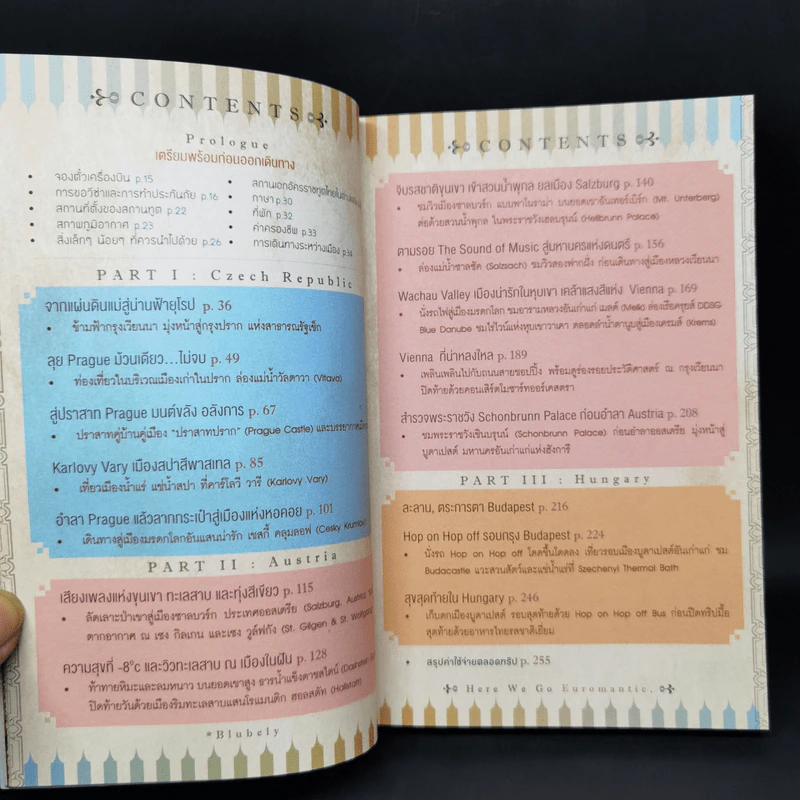 CONTENTS
Prologue
เตรียมพร้อมก่อนออกเดินทาง
• จองตั๋วเครื่องบิน p.15
• การขอวีซ่าและการทำประกันภัย p.16
• สถานที่ตั้งของสถานทูต p.22
• สภาพภูมิอากาศ p.23
• สิ่งเล็กๆ น้อยๆ ที่ควรนำไปด้วย p.26
• สถานเอกอัครราชทูตไทยใน
• ภาษา p.30
• ที่พัก p.32
• ค่าครองชีพ p.33
• การเดินทางระหว่างเมือง p.34
PART I : Czech Republic
จากแผ่นดินแม่สู่น่านฟ้ายุโรป p. 36
• ข้ามฟ้ากรุงเวียนนา มุ่งหน้าสู่กรุงปราก แห่งสาธารณรัฐเช็ก
ลุย Prague ม้วนเดียว...ไม่จบ p. 49
• ท่องเที่ยวในบริเวณเมืองเก่าในปราก ล่องแม่น้ำวัลตาวา (Vltava)
สู่ปราสาท Prague มนต์ขลัง อลังการ p. 67
• ปราสาทคู่บ้านคู่เมือง "ปราสาทปราก" (Prague Castle) และบรรยากาศ
Karlovy Vary เมืองสปาสีพาสเทล p. 85
• เที่ยวเมืองน้ำแร่ แช่น้ำสปา ที่คาร์โลวี วารี (Karlovy Vary)
อำลา Prague แล้วลากกระเป๋าสู่เมืองแห่งหอคอย p. 101
• เดินทางสู่เมืองมรดกโลกอันแสนน่ารัก เชสกี้ ครุมลอฟ (Cesky Krumlov)
PART II : Austria
เสียงเพลงแห่งขุนเขา ทะเลสาบ และทุ่งสีเขียว p. 115
• ลัดเลาะป่าเขาสู่เมืองซาลบวร์ก ประเทศออสเตรีย (Salzburg, Austria)
ตากอากาศ ณ เซง กิลเกน และเซง วูล์ฟกัง (St. Gilgen & St. Wolfgang)
ความสุขที่ -8°c และวิวทะเลสาบ ณ เมืองในฝัน p. 128
• ท้าทายหิมะและลมหนาว บนยอดเขาสูง ธารน้ำแข็งดาชสไตน์
ปิดท้ายวันด้วยเมืองริมทะเลสาบแสนโรแมนติก ฮอลสตัท (Hallstatt)
*Blubely
CONTENTS
จิบรสชาติขุนเขา เข้าสวนน้ำพุกล ยลเมือง Salzburg p. 140
• ชมวิวเมืองซาลบวร์ก แบบพาโนราม่า บนยอดเขาอันเทอร์เบิร์ก (Mt. Unterberg)
ต่อด้วยสวนน้ำพุกล ในพระราชวังเฮลบรุนน์ (Hellbrunn Palace)
ตามรอย The Sound of Music สู่มหานครแห่งดนตรี p. 156
• ล่องแม่น้ำซาลซัค (Salzach) ชมวิวสองฟากฝั่ง ก่อนเดินทางสู่เมืองหลวงเวียนนา
Wachau Valley เมืองน่ารักในหุบเขา เคล้าแสงสีแห่ง Vienna p. 169
• นั่งรถไฟสู่เมืองมรดกโลก ชมอารามหลวงอันเก่าแก่ เมลค์ (Melk) ล่องเรือครุยส์ DDSG
Blue Danube ชมไร่ไวน์แห่งหุบเขาวาเคา ตลอดลำน้ำดานูบสู่เมืองเครมส์ (Krems)
Vienna ที่น่าหลงใหล p. 189
• เพลินเพลินไปกับถนนสายชอปปิ้ง พร้อมดูร่องรอยประวัติศาสตร์ ณ กรุงเวียนนา
ปิดท้ายด้วยคอนเสิร์ตโมซาร์ทออร์เคสตรา
สำรวจพระราชวัง Schonbrunn Palace ก่อนอำลา Austria p. 208
• ชมพระราชวังเชินบรุนน์ (Schonbrunn Palace) ก่อนอำลาออสเตรีย มุ่งหน้าสู่
บูดาเปสต์ มหานครอันเก่าแก่แห่งฮังการี
PART III : Hungary
ละลาน, ตระการตา Budapest p. 216
Hop on Hop off รอบกรุง Budapest p. 224
• นั่งรถ Hop on Hop off โดดขึ้นโดดลง เที่ยวรอบเมืองบูดาเปสต์อันเก่าแก่ ชม
Budacastle แวะสวนสัตว์และแช่น้ำแร่ที่ Szechenyi Thermal Bath
สุขสุดท้ายใน Hungary p. 246
• เก็บตกเมืองบูดาเปสต์ รอบสุดท้ายด้วย Hop on Hop off Bus ก่อนปิดทริปมื้อ
สุดท้ายด้วยอาหารไทยรสชาติเยี่ยม
• สรุปค่าใช้จ่ายตลอดทริป p. 255
Here We Go Euromantic.